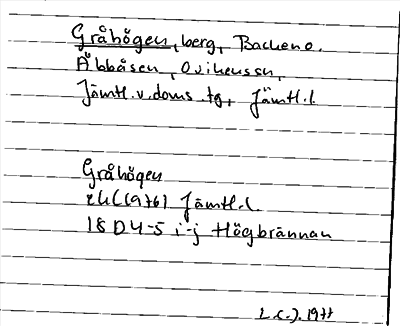 Gråhögen, berg, Backen o.
Åbbåsen, Ovikens sn,
Jämtl. v. doms. tg, Jämtl. l.
Gråhögen
ek (1976) Jämtl. l.
18 D 4-5 i-j Högbrännan
L.C.J. 1977